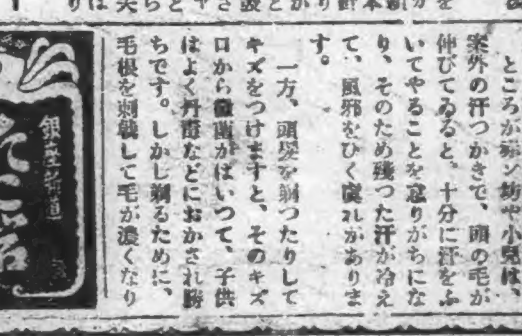 ところが赤ン坊や小兒は、
案外の汗つかきで、頭の毛が
伸びてゐると、十分に汗をふ
いてやることを怠りがちにな
り、そのため殘つた汗が冷え
て、風邪をひく虞れがありま
す。
一方、頭髮を剃つたりして
キズをつけますと、そのキズ
口から黴菌がはいつて、子供
はよく丹毒などにおかされ勝
ちです。しかし剃るために、
毛根を刺戟して毛が濃くなり
銀座新道